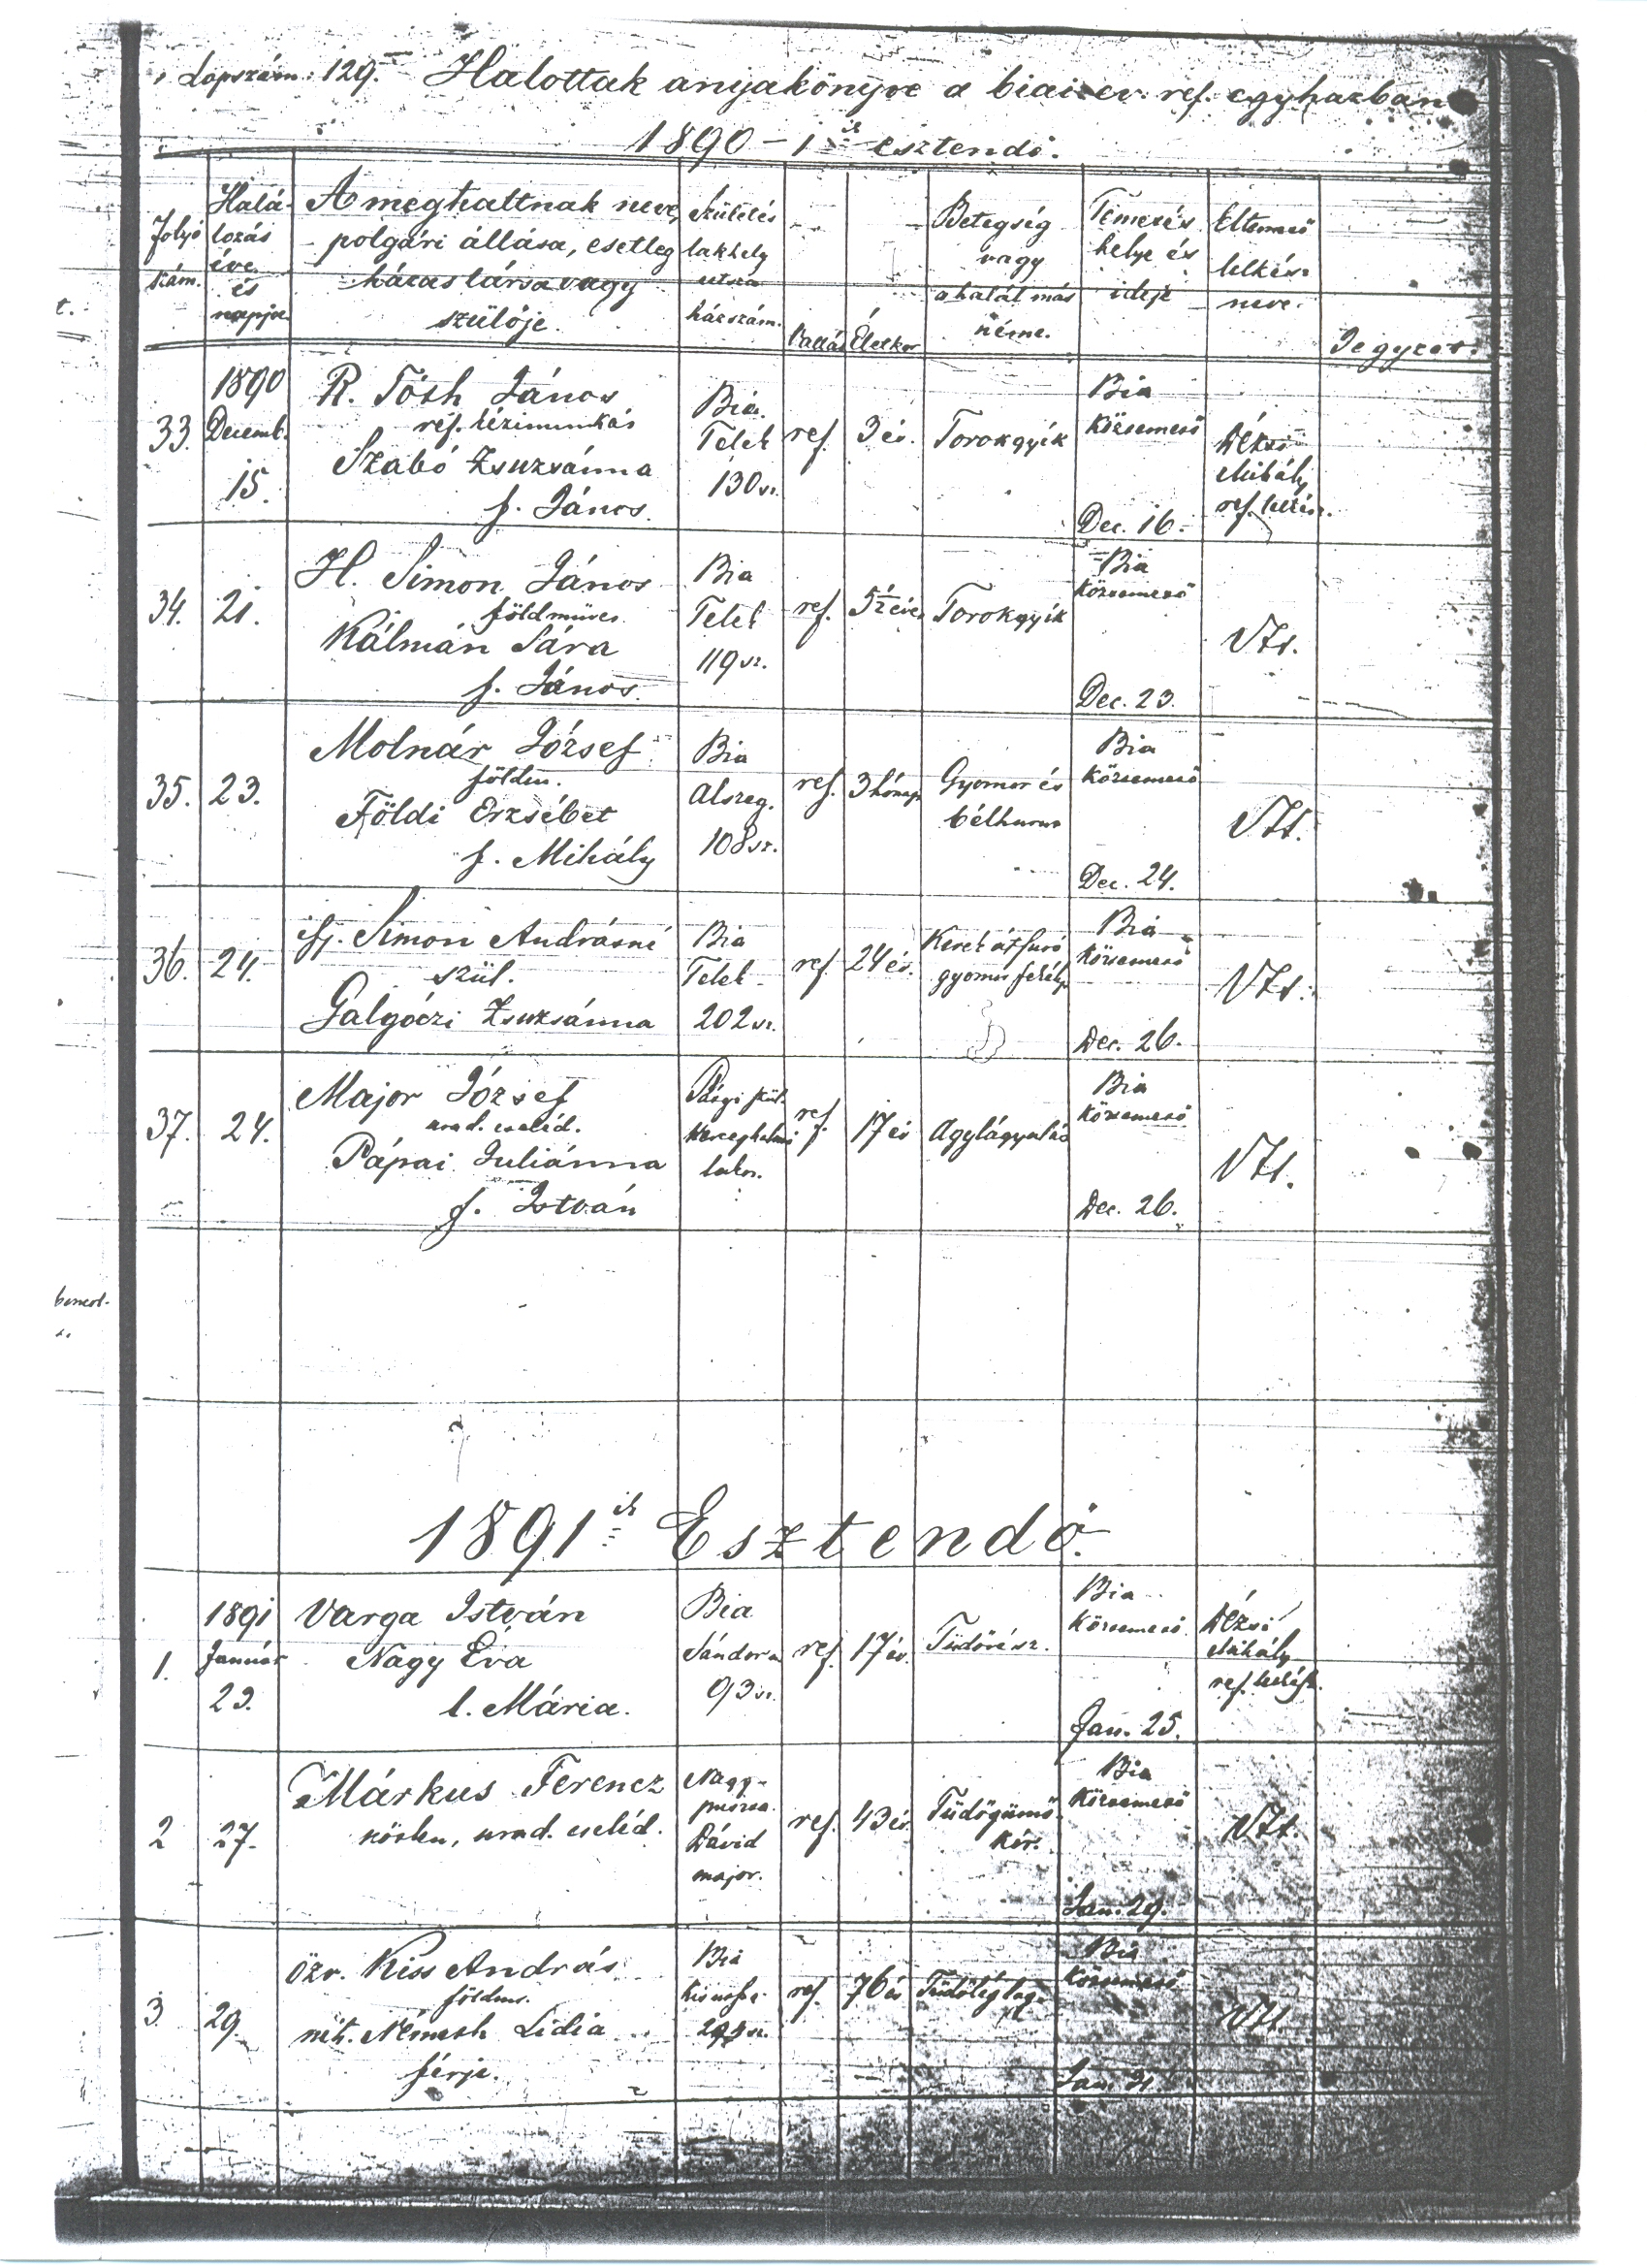 Lapszám: 129. Halottak anyakönyve a biai ev. ref. egyházban
1890-ik esztendő.
Folyó szám.
Halálozás éve és napja
A meghaltnak neve, polgári állása, esetleg házastársa vagy szülője.
Születés lakhely utcza házszám.
Vallás
Életkor
Betegség vagy a halál más neme.
Temetés helye és ideje
Eltemető lelkész neve.
Jegyzet.
33. 1890 Decemb. 15.
R. Tóth János
ref. kézimunkás
Szabó Zsuzsánna
f. János.
Bia. Telek 130 sz.
ref. 3 év. Torokgyík
Bia Köztemető Dec. 16.
Dézsi Mihály ref. lelkész.
34. 21.
H. Simon János
földműves
Kálmán Sára
f. János.
Bia Telek 119 sz.
ref. Torokgyík
Bia Köztemető Dec. 23.
35. 23.
Molnár József
földm.
Földi Erzsébet
f. Mihály
Bia Alszeg. 108 sz.
ref. 3 hónap Gyomor és bélhurut
Bia Köztemető Dec. 24.
36. 24.
ifj. Simon Andrásné
szül.
Galgóczi Zsuzsánna
Bia Telek 202 sz.
ref. 24 év. Kerek átfuró gyomor fekély
Bia Köztemető Dec. 26.
37. 24.
Major József
urad. cseléd.
Pápai Juliánna
f. István
Herceghalmi lakos.
ref. 17 év Agylágyulás
Bia Köztemető Dec. 26.
1891ik Esztendő.
1. 1891 Január 23.
Varga István
Nagy Éva
l. Mária.
Bia Sándor u 93 sz.
ref. 17 év. Tüdővész.
Bia Köztemető. Jan. 25.
Dézsi Mihály ref. lelkész.
2 27.
Márkus Ferencz
nőtlen, urad. cseléd.
Nagy-puszta. Dávid major.
ref. 43 év. Tüdőgümő-kór.
Bia Köztemető Jan. 29.
3 29.
özv. Kiss András
földm.
néh. Németh Lidia
férje.
Bia
ref. 76 év Tüdőlégdag.
Bia Köztemető Jan. 31.